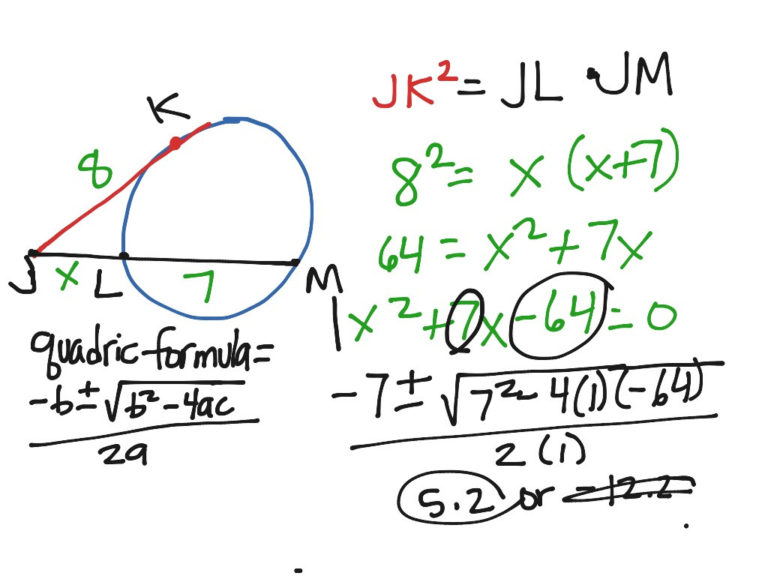 K
8
J x L 7 M
JK² = JL · JM
8² = x (x+7)
64 = x² + 7x
1x² + 7x - 64 = 0
quadric formula =
-b ± √b² - 4ac
2a
-7 ± √7² - 4(1)(-64)
2(1)
5.2 or -12.2